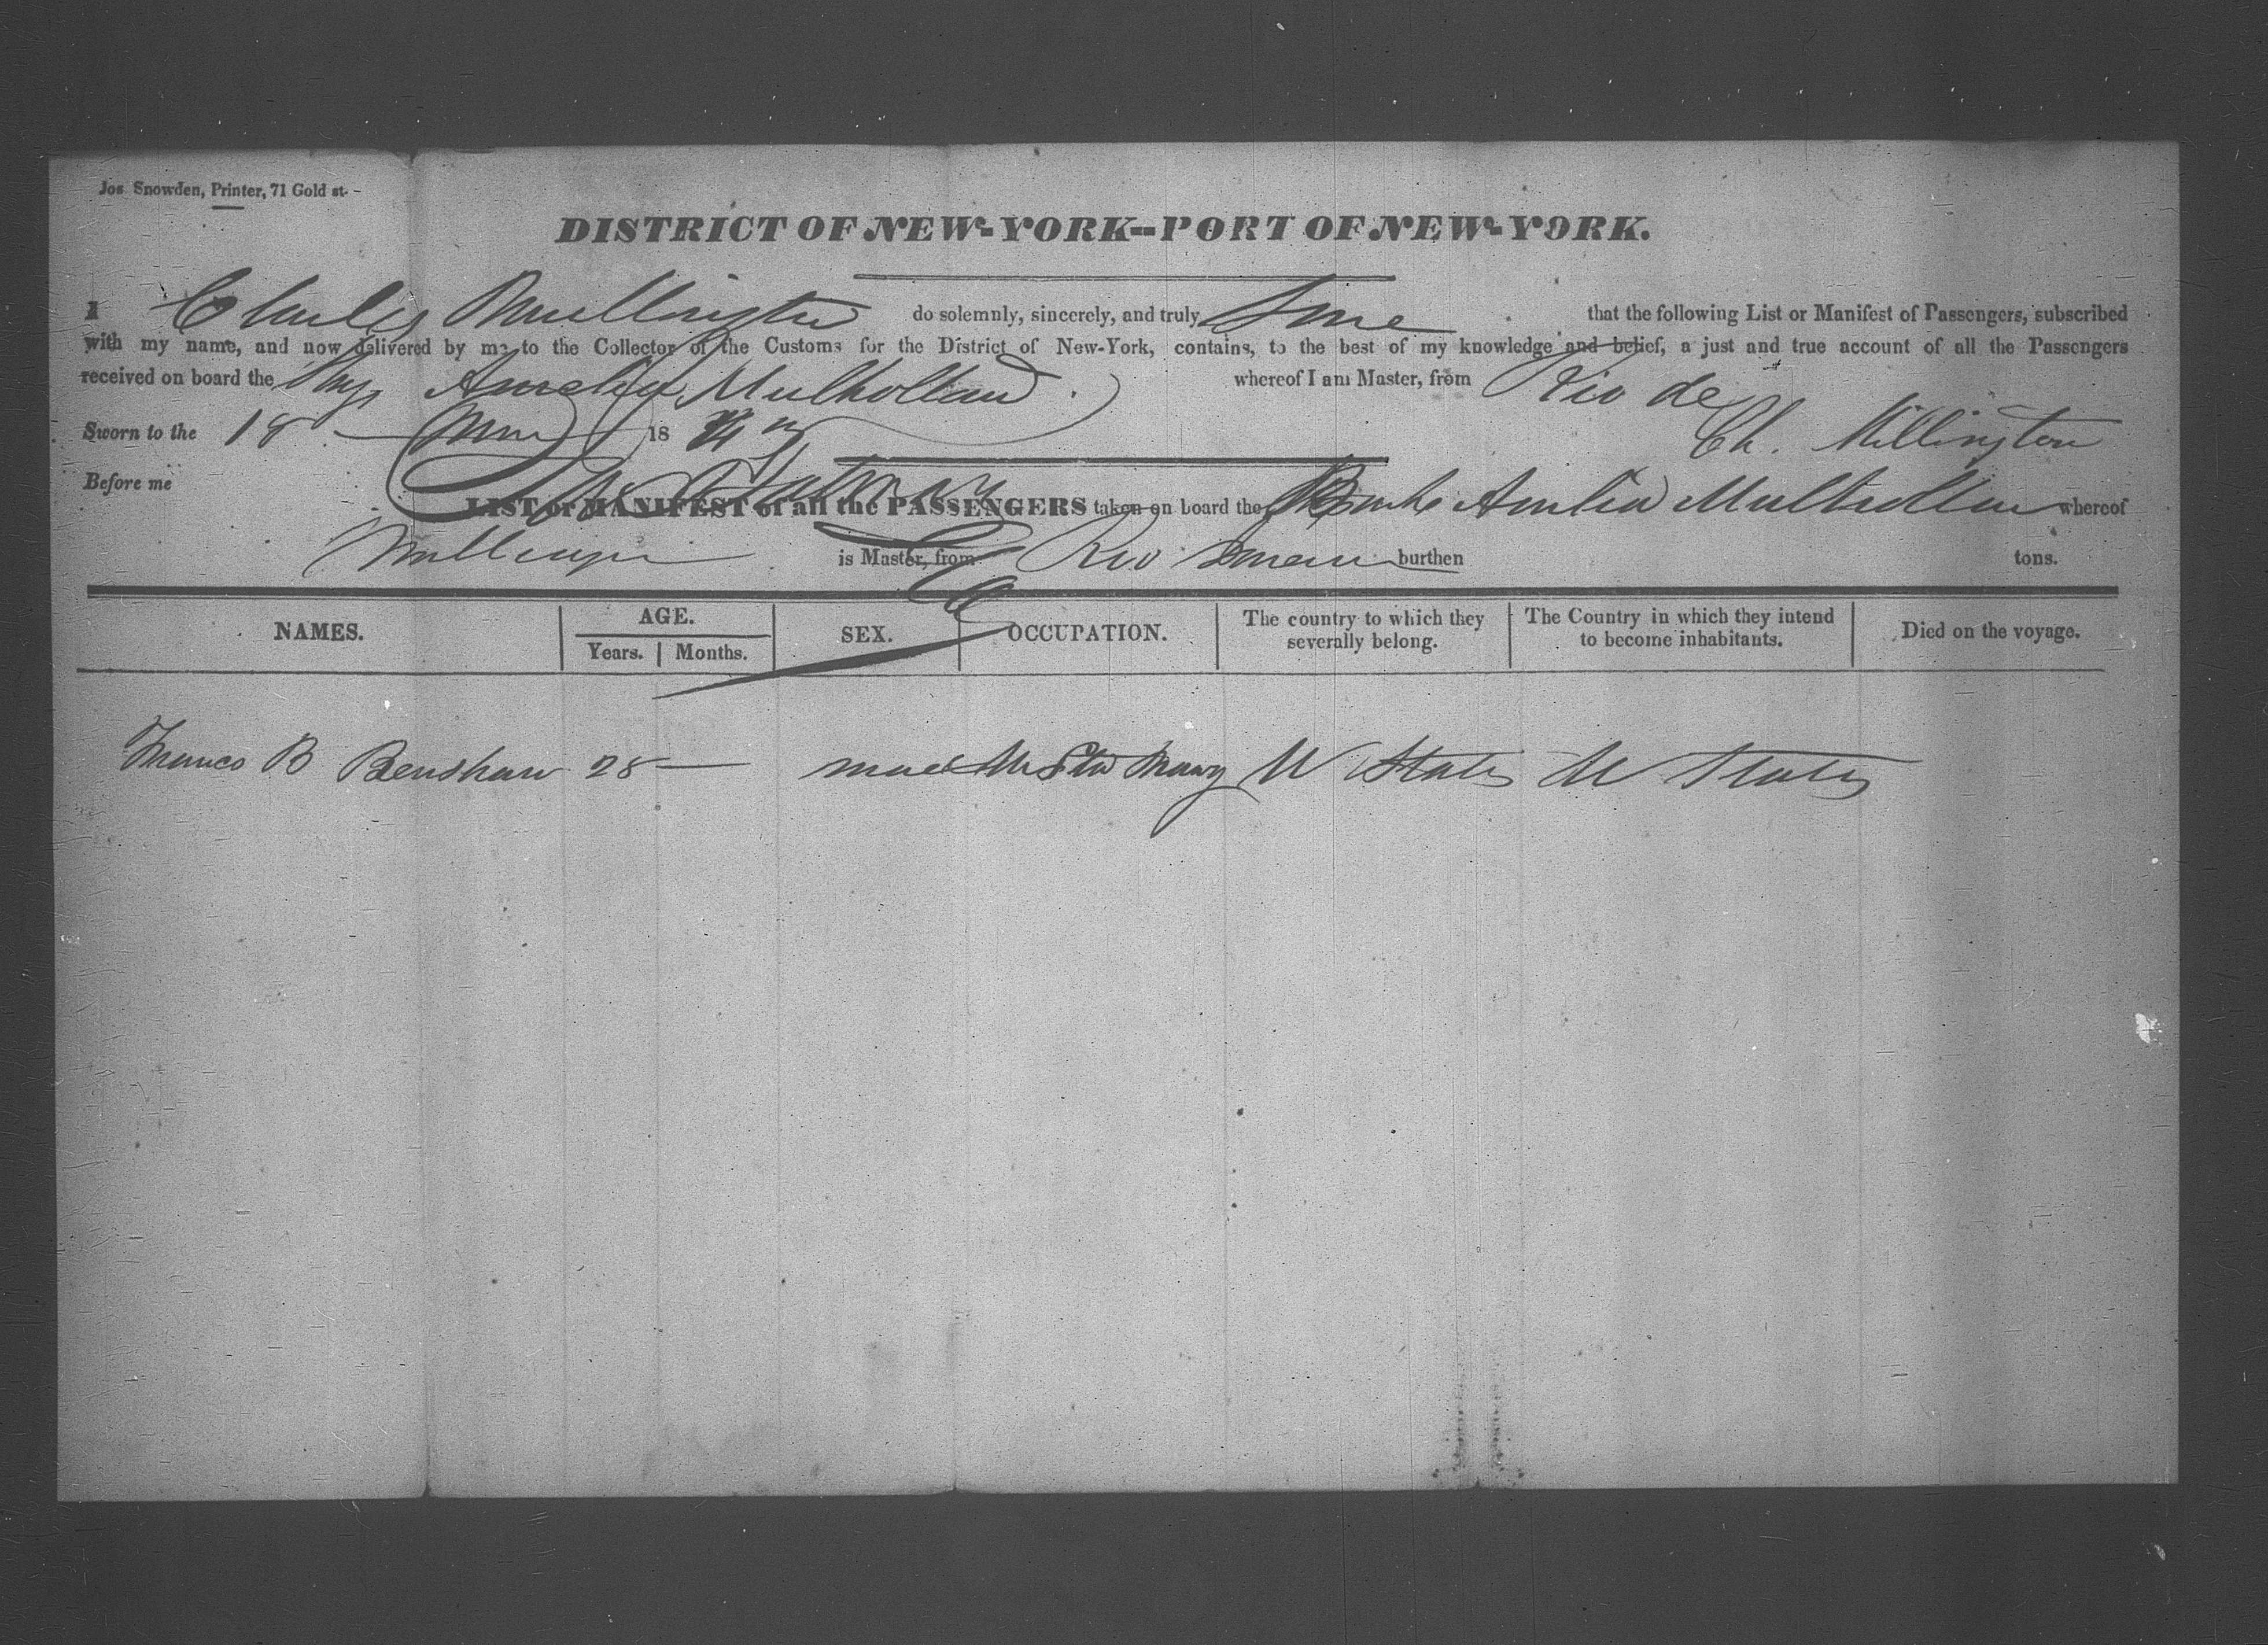 Jos Snowden, Printer, 71 Gold st.
DISTRICT OF NEW-YORK--PORT OF NEW-YORK.
I Charles Mullington do solemnly, sincerely, and truly that the following List or Manifest of Passengers, subscribed
with my name, and now delivered by me to the Collector of the Customs for the District of New-York, contains, to the best of my knowledge and belief, a just and true account of all the Passengers
received on board the Amelia Mulholland whereof I am Master, from Rio de
Sworn to the 18 18 Ch. Millington
Before me
LIST or MANIFEST of all the PASSENGERS taken on board the Amelia Mulhollan whereof
is Master, from Rio burthen tons.
NAMES. AGE. SEX. OCCUPATION. The country to which they severally belong. The Country in which they intend to become inhabitants. Died on the voyage.
Years. Months.
B Benshaw 28 male U States U States